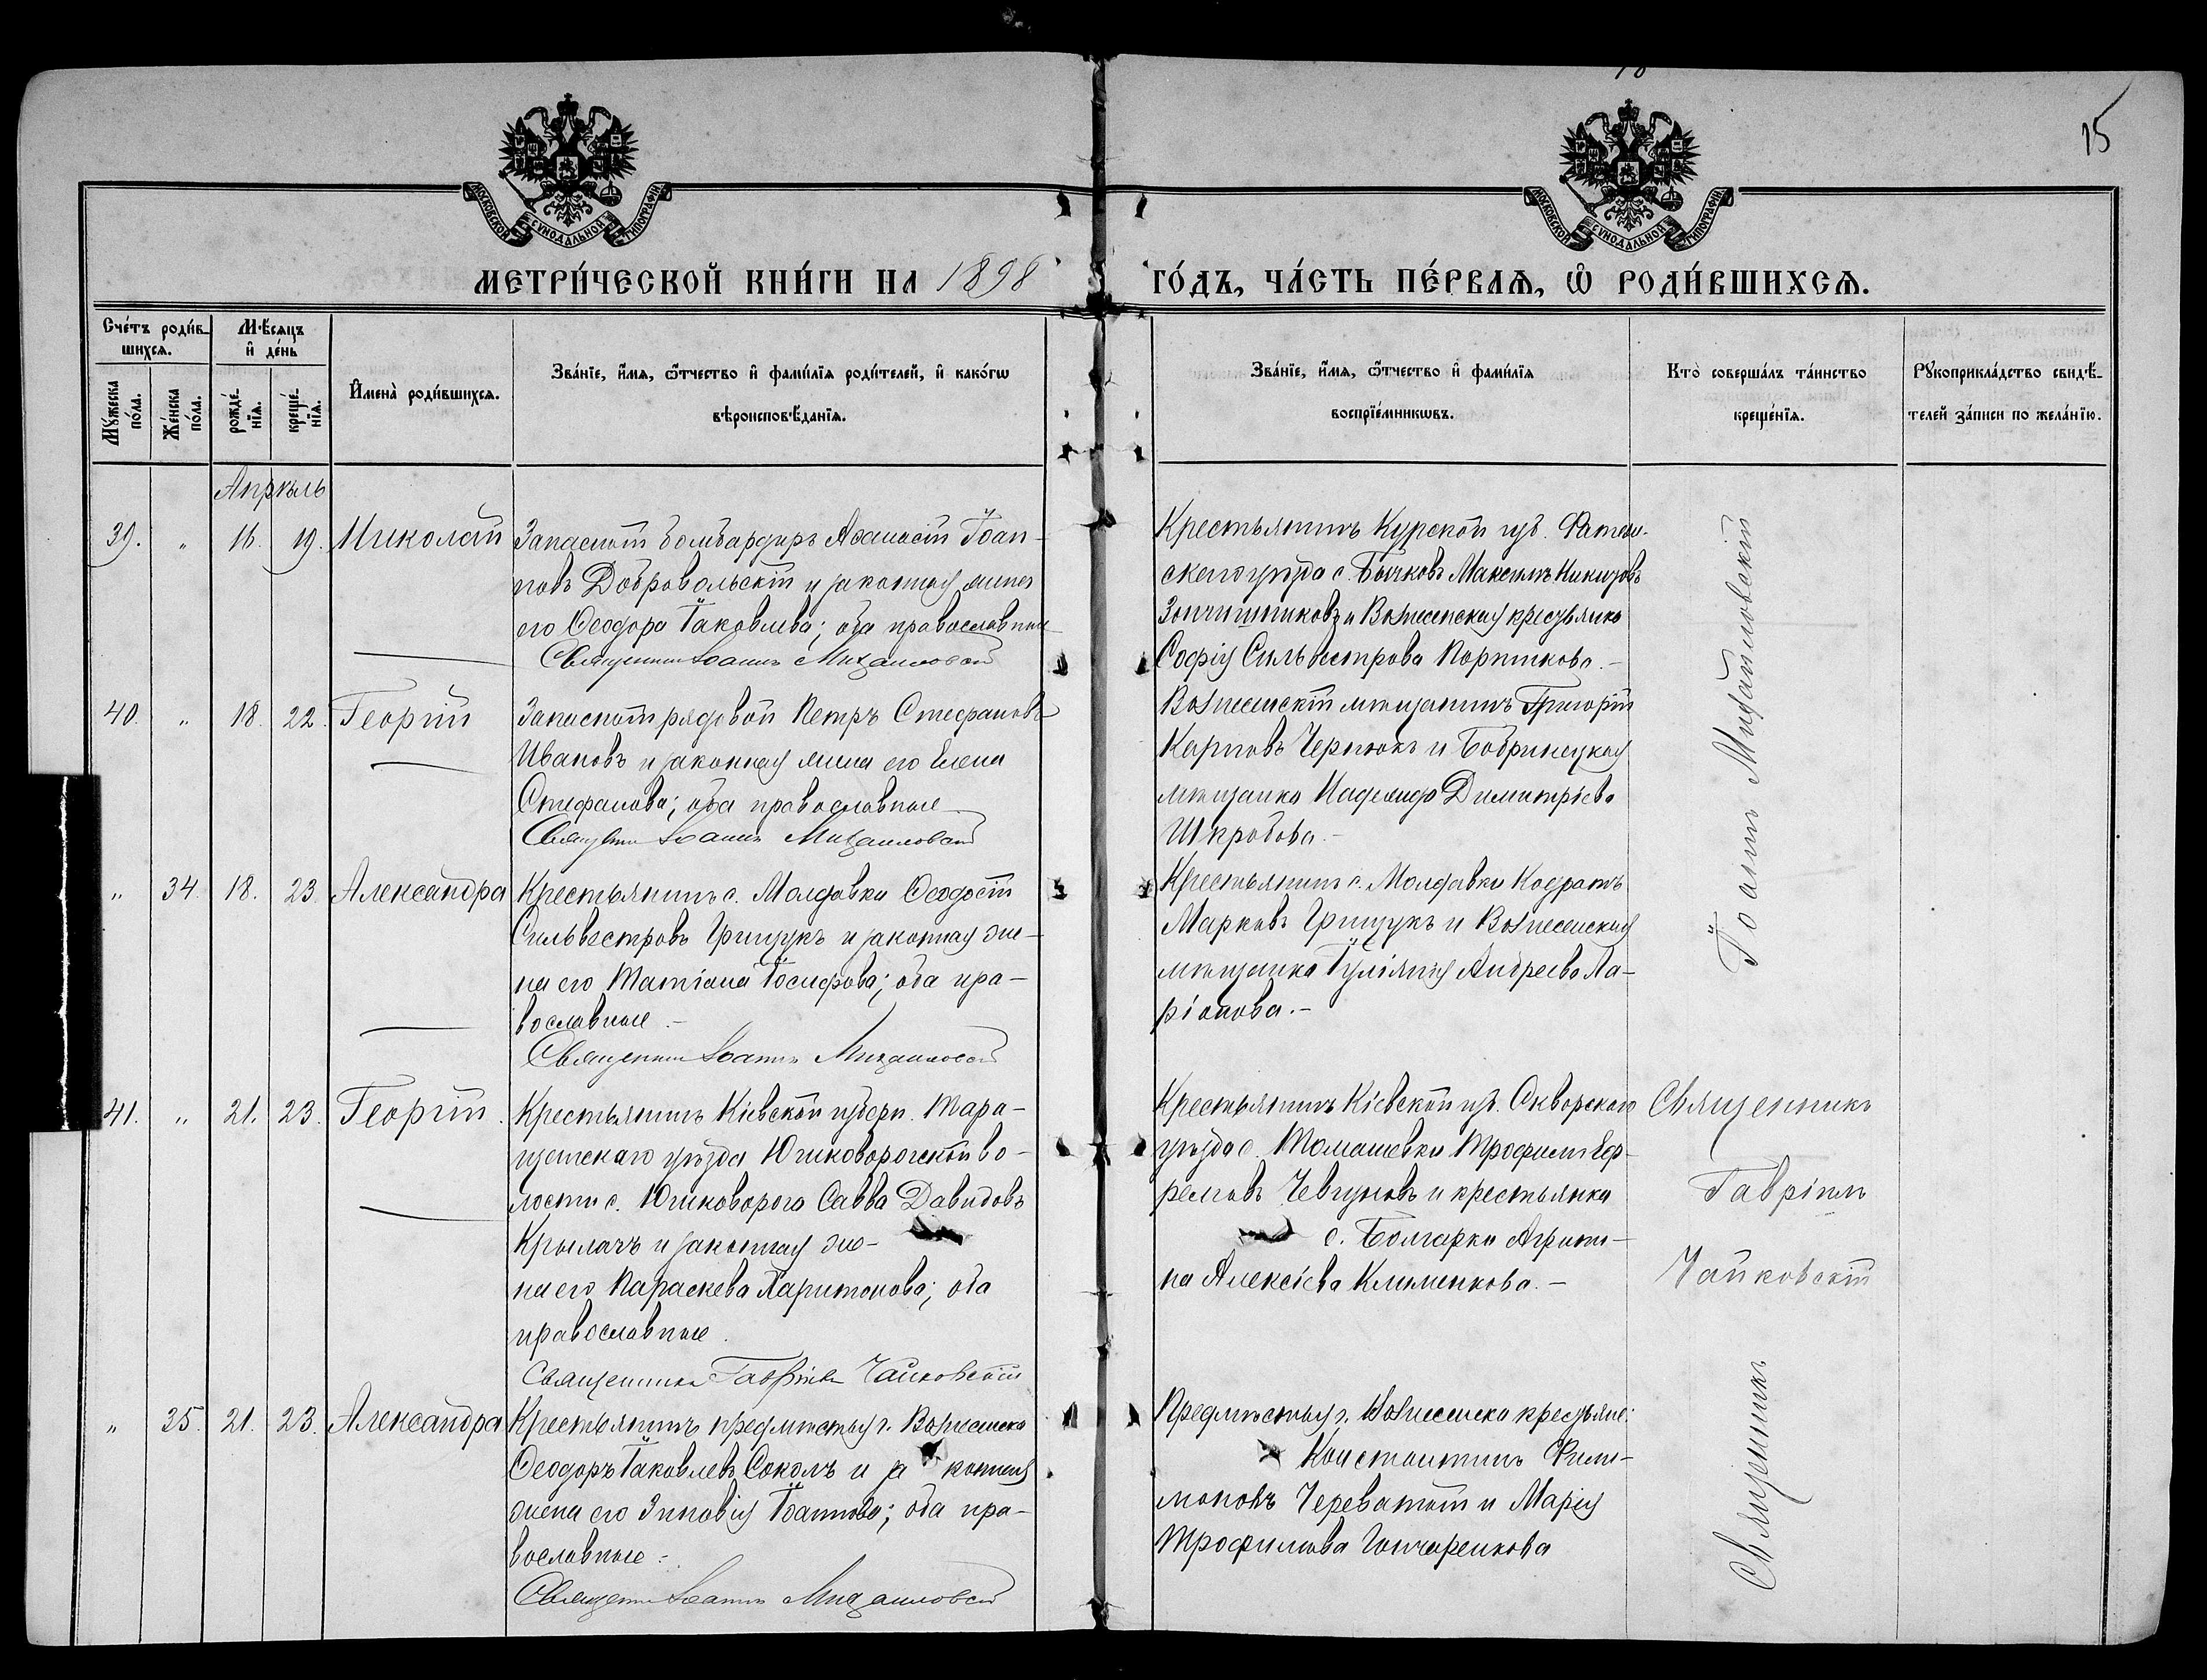 15
МОСКОВСКОЙ СѴНОДАЛЬНОЙ ТИПОГРАФІИ
МОСКОВСКОЙ СѴНОДАЛЬНОЙ ТИПОГРАФІИ
МЕТРИ́ЧЕСКОЙ КНИ́ГИ НА 1898 ГО́ДЪ, ЧА́СТЬ ПЕ́РВАѦ, Ѡ҆ РОДИ́ВШИХСѦ.
Сче́тъ роди́в-
шихсѧ.
Мѣ́сѧцъ
и҆ де́нь
Мꙋ́жеска по́ла.
Же́нска по́ла.
рожде́-
нїѧ.
креще́-
нїѧ.
И҆мена̀ роди́вшихсѧ.
Зва́нїе, и҆́мѧ, ѻ҆́тчество и҆ фами́лїѧ роди́телей, и҆ како́гѡ
вѣроисповѣ́данїѧ.
Зва́нїе, и҆́мѧ, ѻ҆́тчество и҆ фами́лїѧ
воспрїе́мникѡвъ.
Кто̀ соверша́лъ та́инство
креще́нїѧ.
Рꙋкоприкла́дство свидѣ́-
телей за́писи по жела́нїю.
Апрѣль
39. " 16. 19. Николай
Запасной бомбардиръ Аѳанасій Іоан-
новъ Добровольскій и законная жена
его Ѳеодора Іаковлева; оба православные
Священникъ Іоаннъ Михайловскій
Крестьянинъ Курской губ. Фатеж-
скаго уѣзда с. Бычковъ Максимъ Никитовъ
и Вознесенская крестьянка
Софія Сильвестрова Портнкова.-
40. " 18. 22. Георгій
Запасной рядовой Петръ Стефановъ
Ивановъ и законная жена его Елена
Стефанова; оба православные
Священникъ Іоаннъ Михайловскій
Вознесенскій мѣщанинъ Григорій
Карповъ Чернюкъ и Бобринецкая
мѣщанка Надежда Димитріева
Шкробова.-
" 34. 18. 23. Александра
Крестьянинъ с. Молдавки Ѳеодосій
Сильвестровъ Грищукъ и законная же-
на его Татіана Іосифова; оба пра-
вославные.-
Священникъ Іоаннъ Михайловскій
Крестьянинъ с. Молдавки Кодратъ
Марковъ Грищукъ и Вознесенская
мѣщанка Іуліанія Андреева Ла-
ріонова.-
Священникъ Іоаннъ Михайловскій
41. " 21. 23. Георгій.
Крестьянинъ Кіевской губерн. Тара-
щанскаго уѣзда Юшковорогской во-
лости с. Юшковорога Савва Давидовъ
Крылачъ и законная же-
на его Параскева Харитонова; оба
православные.
Священникъ Гавріилъ Чайковскій
Крестьянинъ Кіевской губ. Сквирскаго
уѣзда с. Томашевки Трофимъ Еф-
ремовъ Чевгуновъ и крестьянка
с. Болгарки Агрипи-
на Алексіева Клименкова.-
Священникъ
Гавріилъ
Чайковскій
" 35. 21. 23. Александра
Крестьянинъ предмѣстья г. Вознесенска
Ѳеодоръ Іаковлевъ Соколъ и законная
жена его Зиновія Іоаннова; оба пра-
вославные.-
Священникъ Іоаннъ Михайловскій
Предмѣстья г. Вознесенска крестьяне:
Константинъ Фили-
моновъ Череватый и Марія
Трофимова Гончаренкова
Священникъ